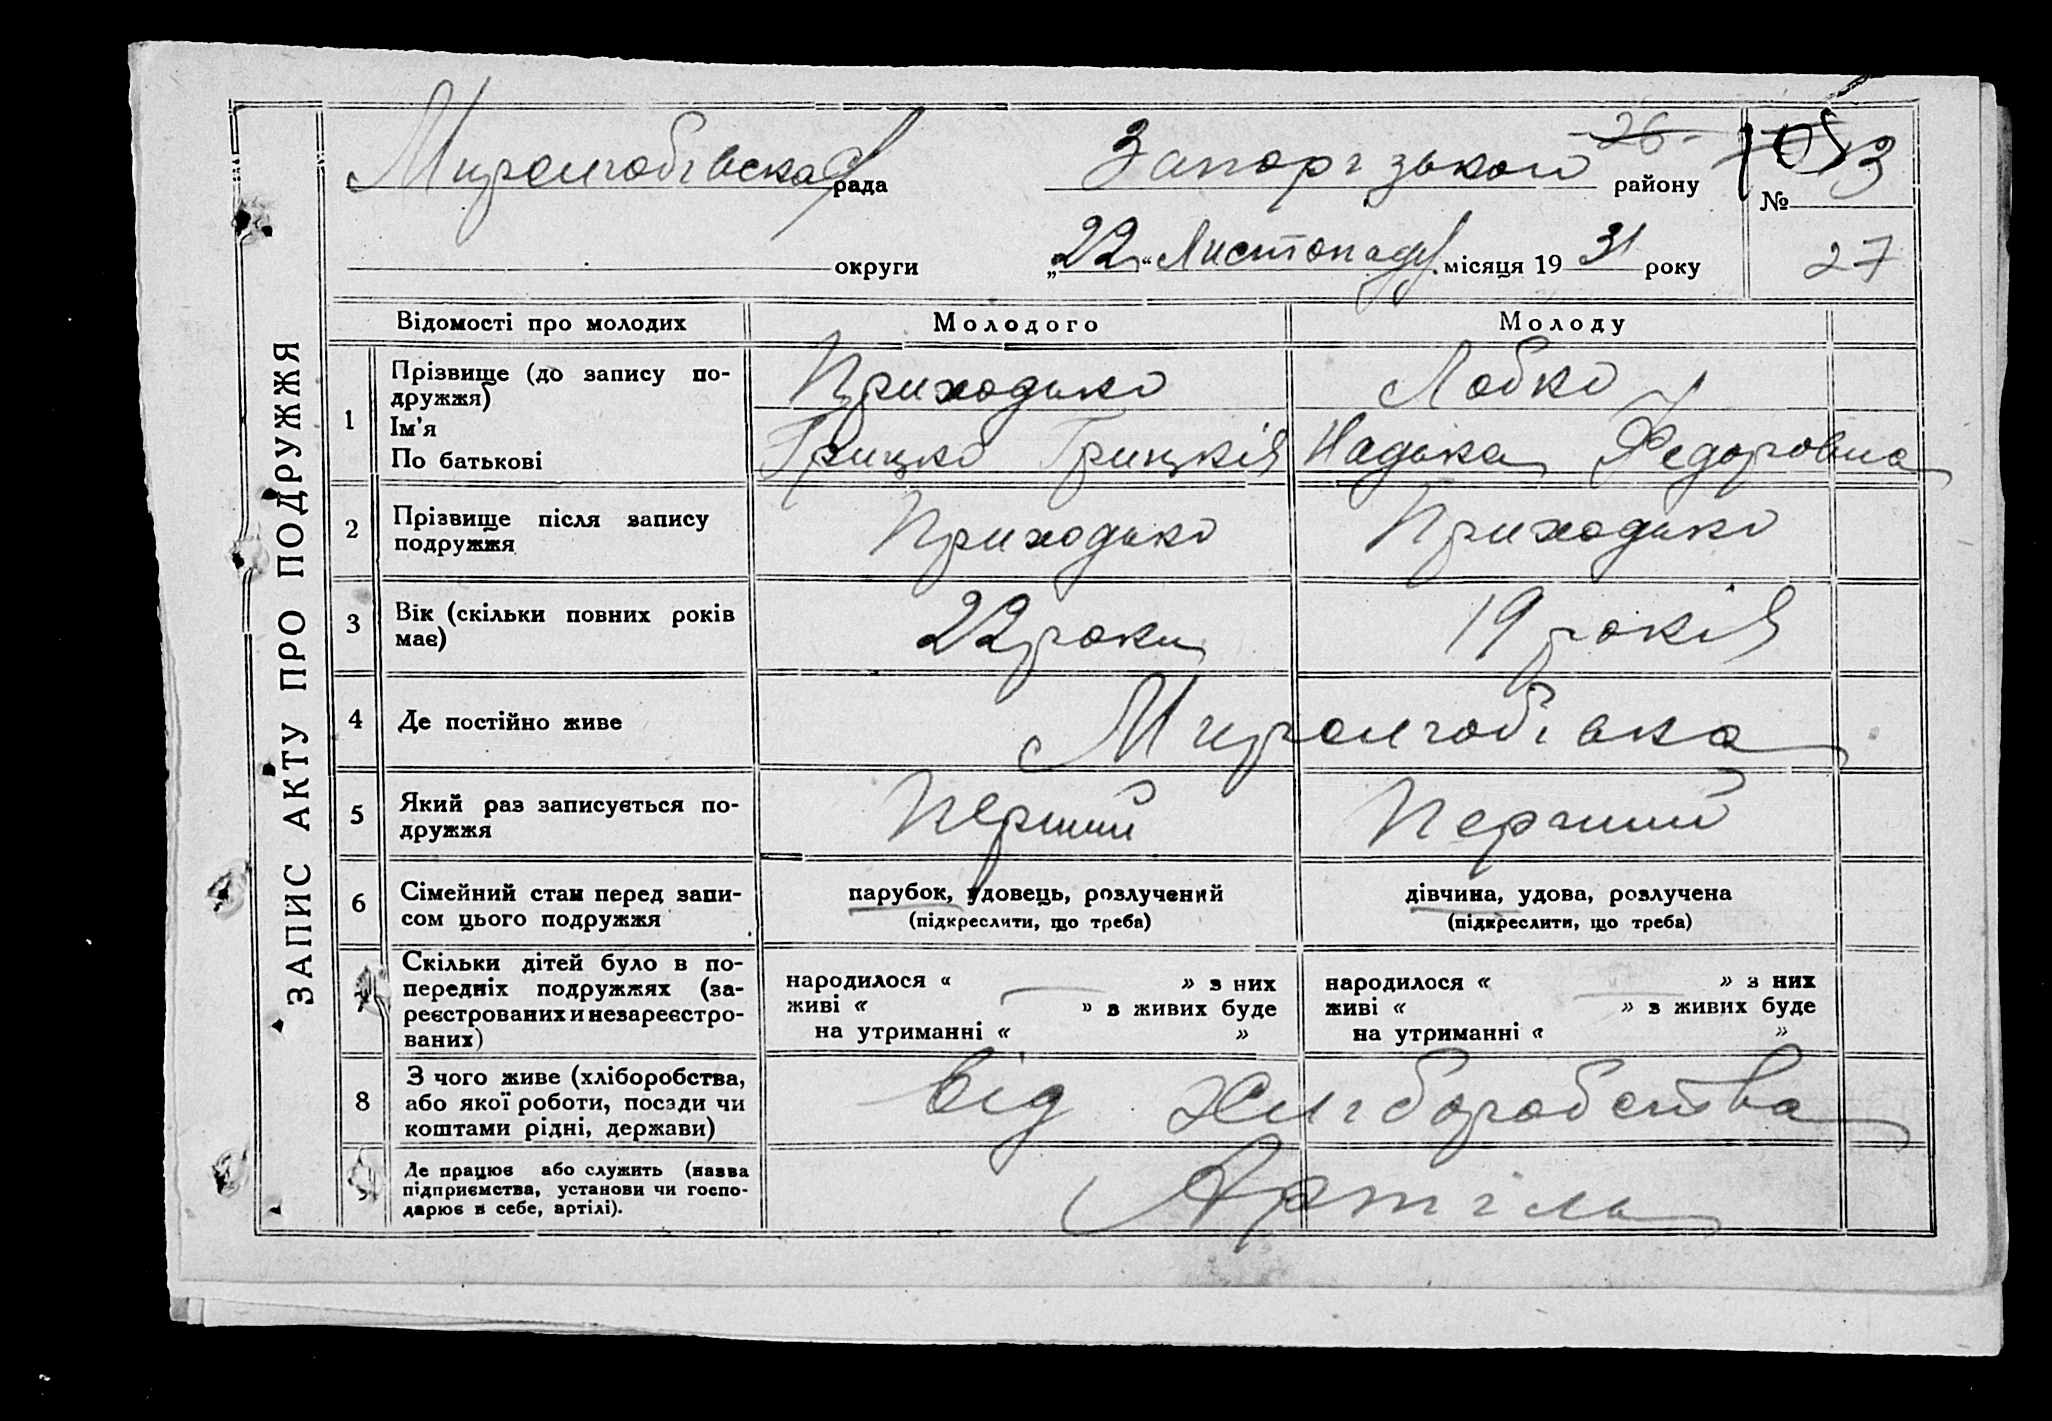 ЗАПИС АКТУ ПРО ПОДРУЖЖЯ
Миролюбівська рада
Запорізького району
26
13
№
округи
„22“ Листопаду місяця 1931 року
27
Відомості про молодих Молодого Молоду
1 Прізвище (до запису по-
дружжя)
Ім'я
По батькові
Приходько Лобко
Грицко Грицків Надька Федоровна
2 Прізвище після запису
подружжя
Приходько Приходько
3 Вік (скільки повних років
має)
22 роки 19 років
4 Де постійно живе
Миролюбівка
5 Який раз записується по-
дружжя
Перший Перший
6 Сімейний стан перед запи-
сом цього подружжя
парубок, удовець, розлучений
(підкреслити, що треба)
дівчина, удова, розлучена
(підкреслити, що треба)
Скільки дітей було в по-
передніх подружжях (за-
реєстрованих и незареєстро-
ваних)
народилося « » з них
живі « » в живих буде
на утриманні « »
народилося « » з них
живі « » в живих буде
на утриманні « »
8 З чого живе (хліборобства,
або якої роботи, посади чи
коштами рідні, держави)
від хліборобства
Де працює або служить (назва
підприємства, установи чи госпо-
дарює в себе, артілі).
Артіль